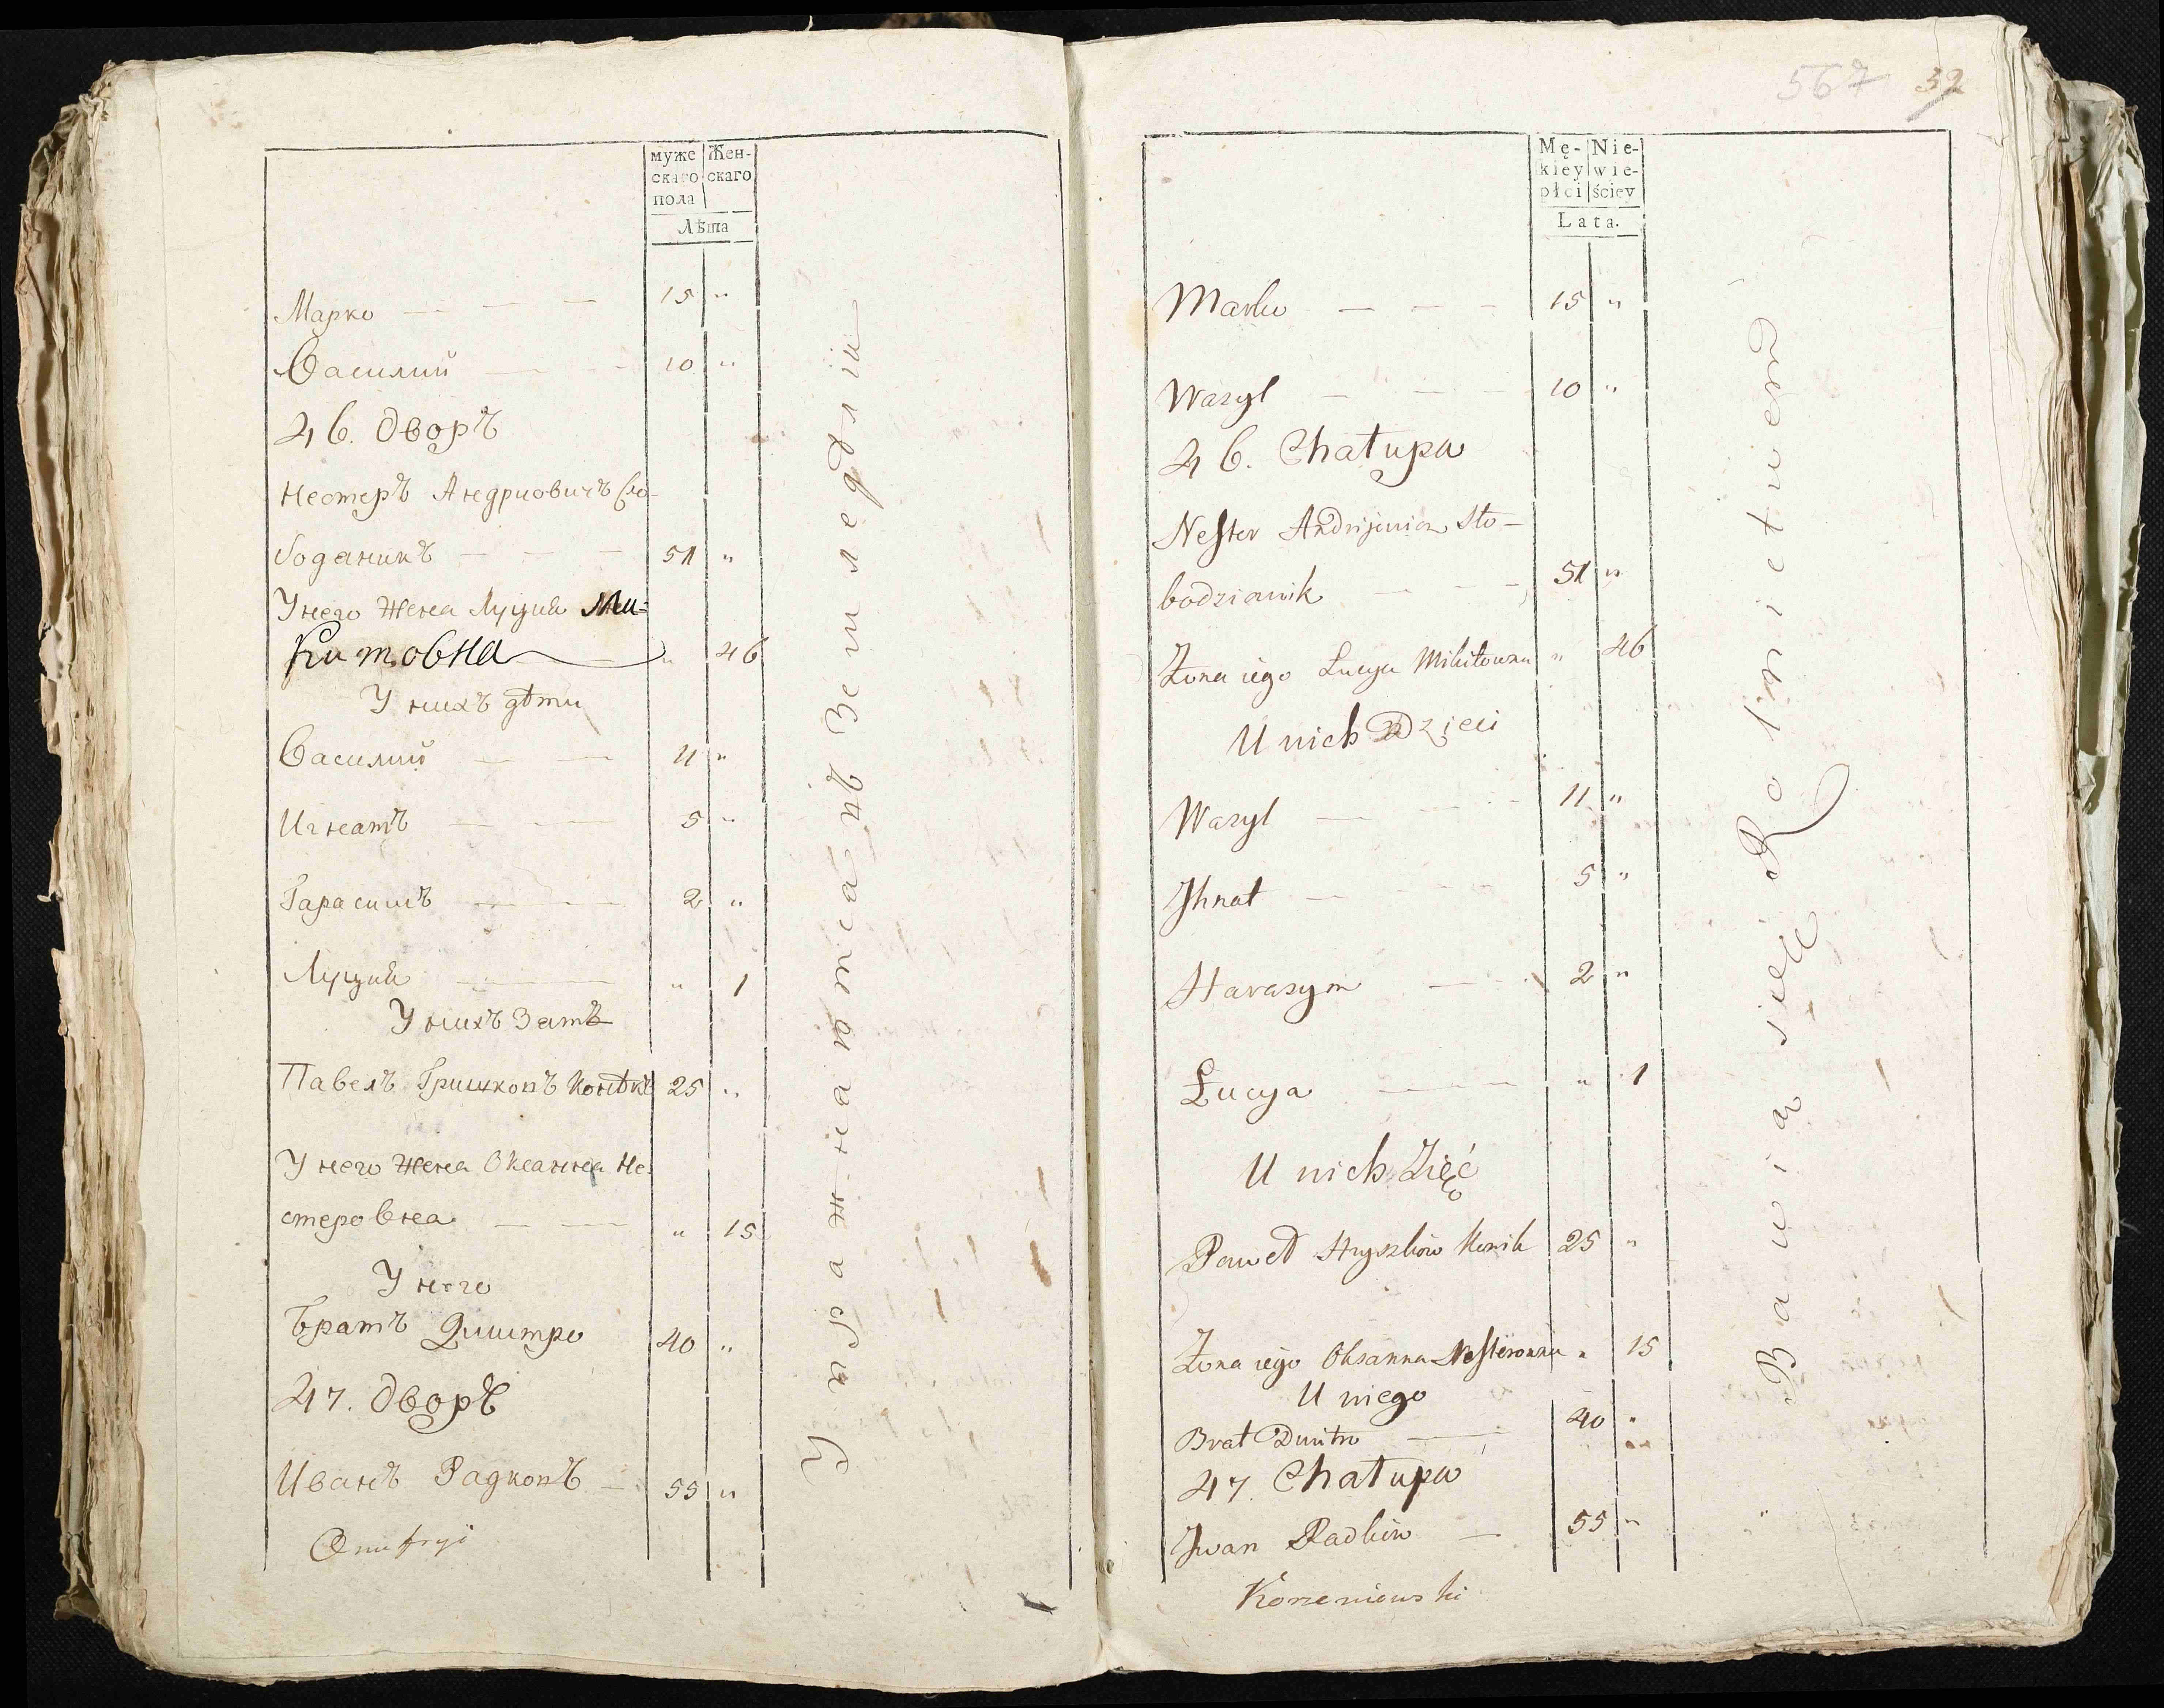 мужескаго пола
Женскаго
Лѣта
Марко — — — 15 "
Василий — — 10 "
46. дворъ
Нестеръ Андриовичъ Сло-
боданикъ — — — 51 "
У него Жена Луция Ми=
Китовна " 46
У нихъ дѣти
Василий — — 11 "
Игнатъ — — 5 "
Гарасимъ — — 2 "
Луция — " 1
У нихъ Зять
Павелъ Гришковъ Коникъ 25 "
У него Жена Оксанна Не-
стеровна — — " 15
У него
Братъ Дмитро 40 "
47. дворъ
Иванъ Радковъ — 55 "
Onufryi
Упражнаютса въ Земледѣлiи
567 32
Mę-kiey płci
Nie-wie-ściey
Lata.
Marko — — — 15 "
Wasyl — — — 10 "
46. Chałupa
Nester Andrijowicz Sło-
bodzianik — — — 51 "
Żona iego Łucya Mikitowna " 46
U nich Dzieci
Wasyl — — — 11 "
Jhnat — — — 5 "
Harasym — — 2 "
Łucya — — " 1
U nich Zięć
Paweł Hryszków Konik 25 "
Żona iego Oksanna Nesterowna " 15
U niego
Brat Dmitro — 40 "
47. Chałupa
Jwan Radków — 55 "
Korzeniowski
Bawią się Rolnictwem